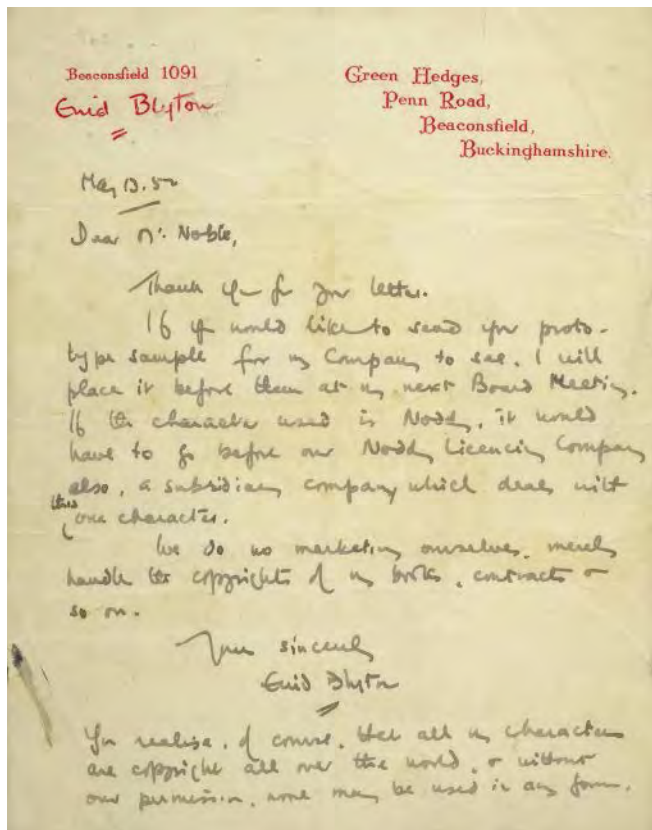 Beaconsfield 1091
Enid Blyton
Green Hedges,
Penn Road,
Beaconsfield,
Buckinghamshire.
May 13. 52
Dear Mr. Noble,
Thank you for your letter.
If you would like to send your proto-
type sample for my Company to see, I will
place it before them at my next Board Meeting.
If the character used is Noddy, it would
have to go before our Noddy Licencing Company
also, a subsidiary company which deals with
this one character.
We do no marketing ourselves, merely
handle the copyrights of my books, contracts &
so on.
Yours sincerely
Enid Blyton
You realise, of course, that all my characters
are copyright all over the world, & without
our permission, none may be used in any form.